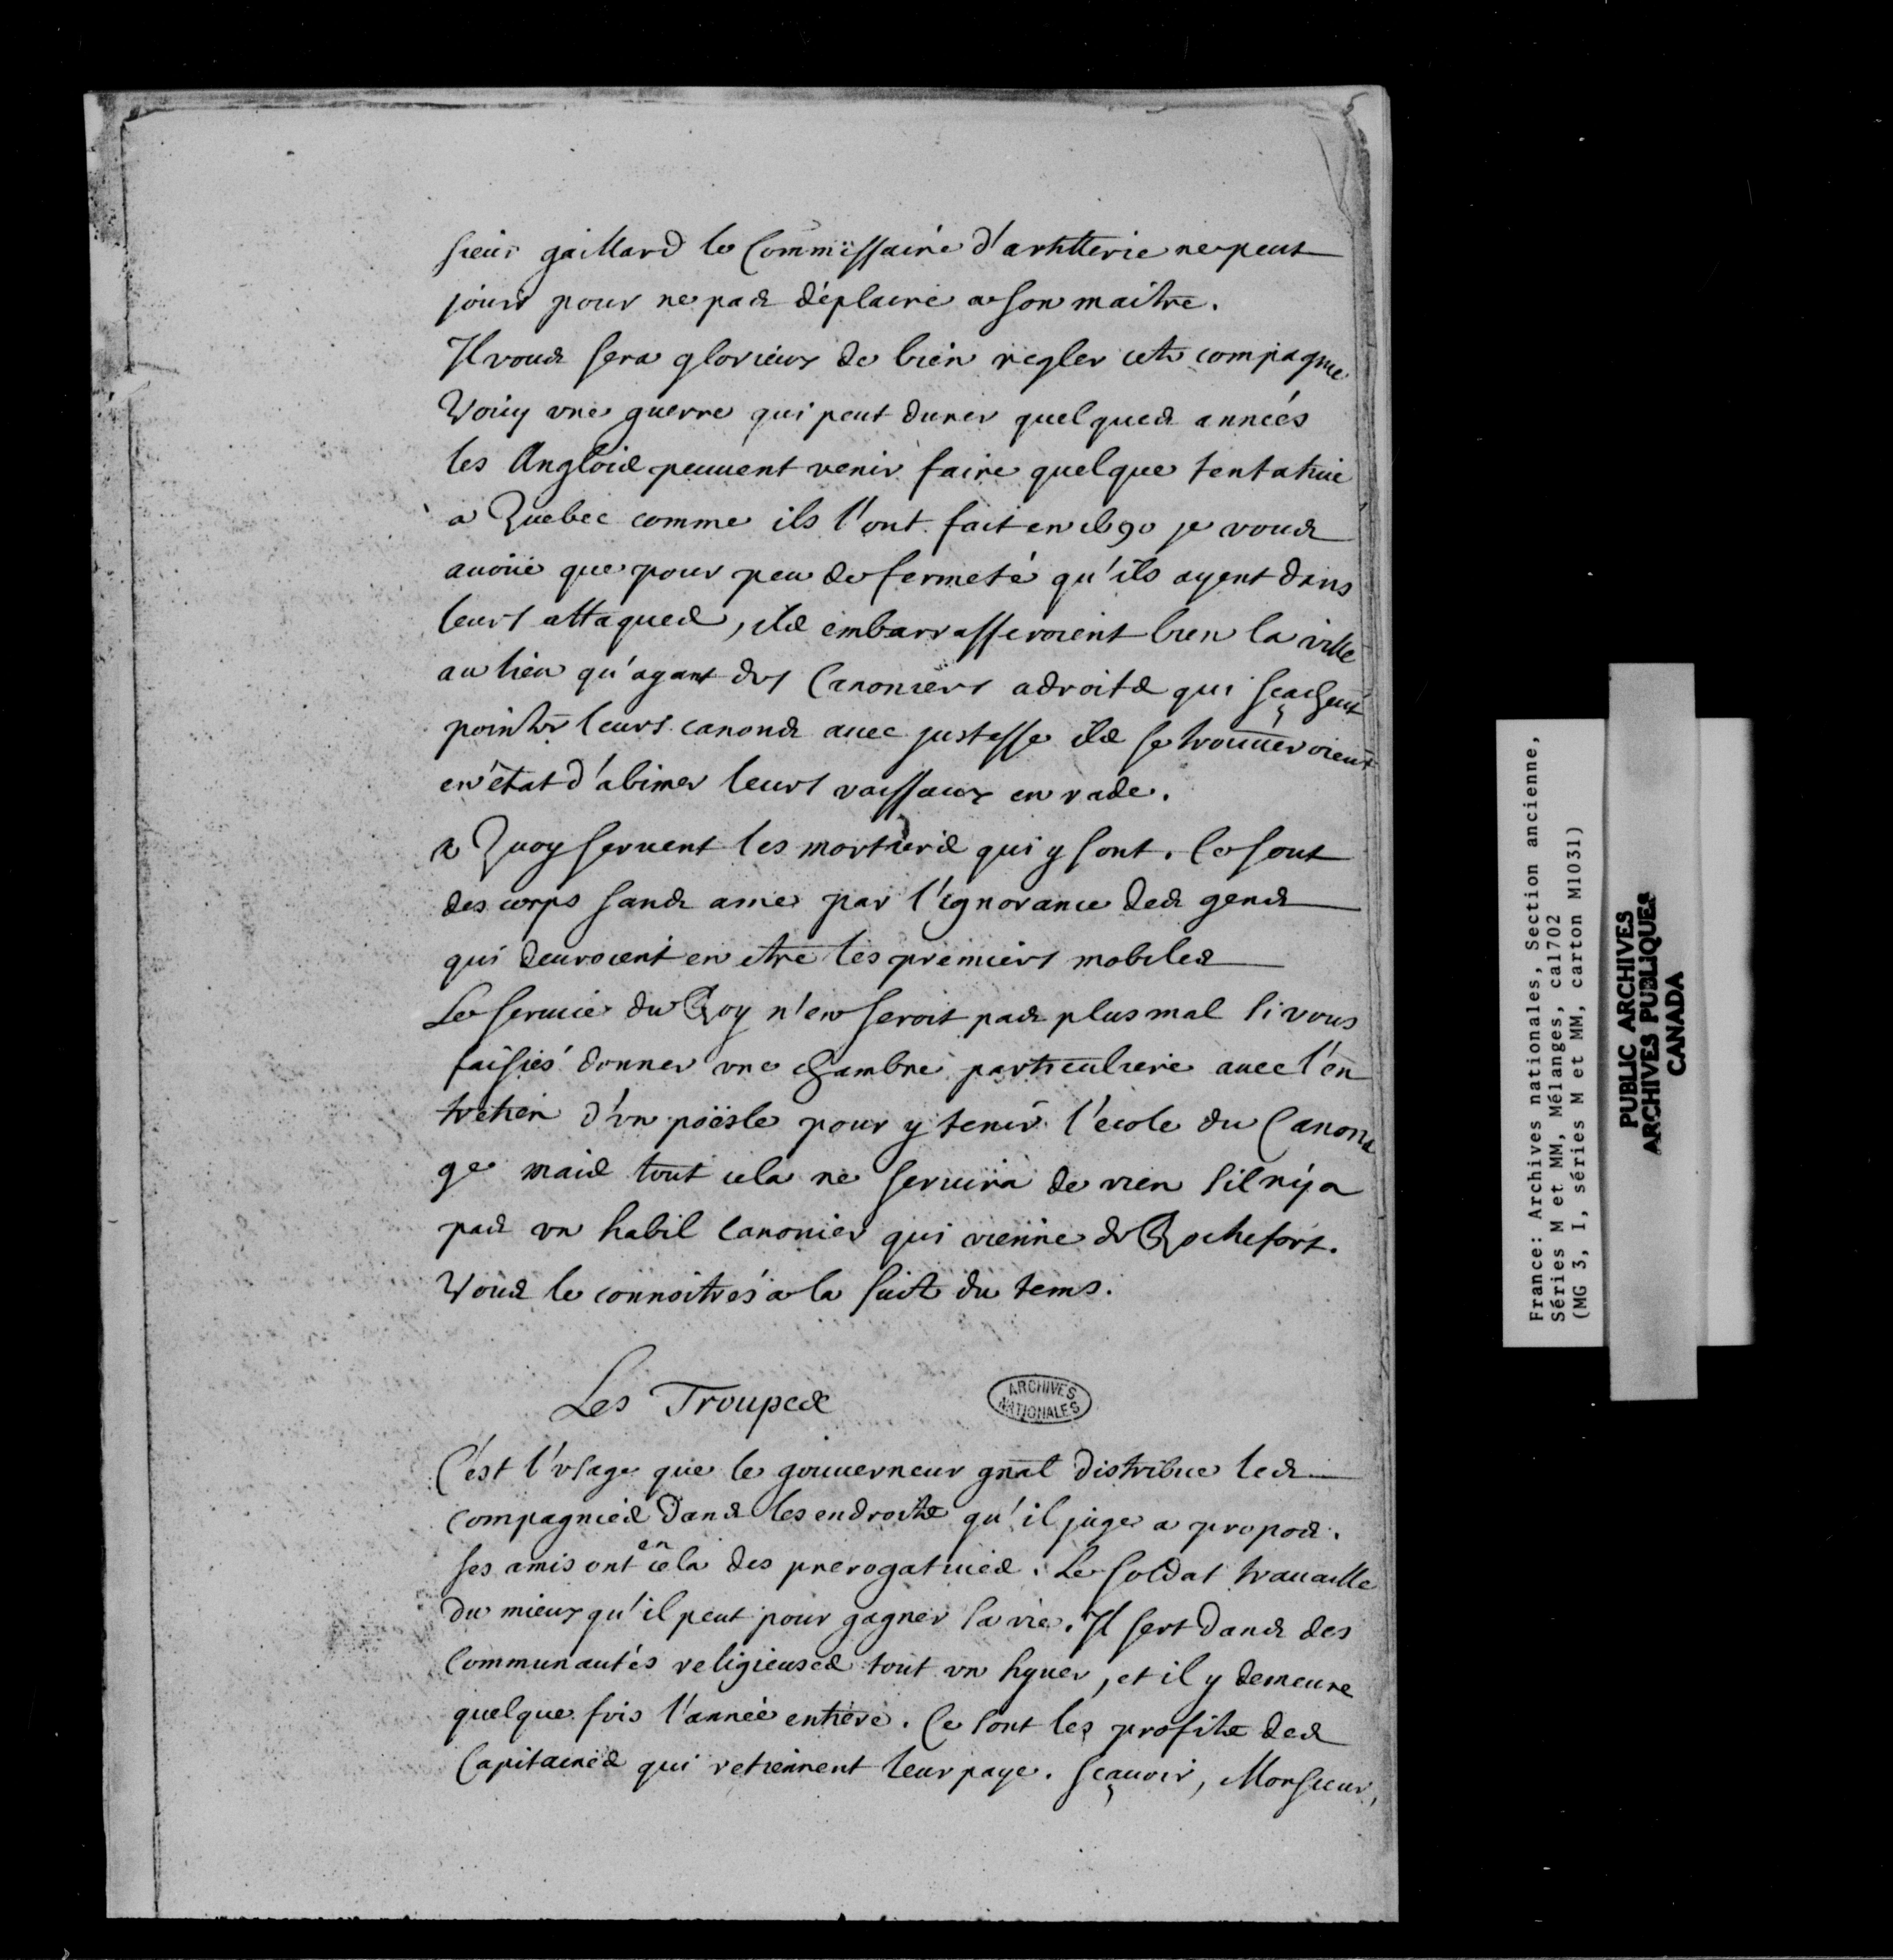 sieur gaillard le Commissaire d'artillerie ne peut
jouir pour ne pas déplaire a son maitre.
Il vous sera glorieux de bien regler cette compagnie
Voicy une guerre qui peut durer quelques années
les Anglois peuuent venir faire quelque tentatiue
a Quebec comme ils l'ont fait en 1690 je vous
auoüe que pour peu de fermeté qu'ils ayent dans
leurs attaques, ils embarrasseroient bien la ville
au lieu qu'ayant des Canoniers adroits qui sçachent
pointer leurs canons auec justesse ils se trouueroient
en état d'abimer leurs vaissaux en rade.
a Quoy seruent les mortiers qui y sont. Ce sont
des corps sans ame par l'ignorance des gens
qui deuroient en etre les premiers mobiles
Le seruice du Roy n'en seroit pas plus mal si vous
faisiés donner une chambre particuliere auec l'en
tretien d'un poësle pour y tenir l'ecole du Canona
ge mais tout cela ne seruira de rien s'il n'y a
pas un habil canonier qui vienne de Rochefort.
Vous le connoitrés a la suite du tems.
Les Troupes
C'est l'usage que le gouuerneur gnal distribue les
compagnies dans les endroits qu'il juge a propos.
ses amis ont en cela des prerogatiues. Le soldat trauaille
du mieux qu'il peut pour gagner sa vie. Il sert dans des
Communautés religieuses tout un hyuer, et il y demeure
quelque fois l'année entiere. Ce sont les profits des
Capitaines qui retiennent leur paye. sçauoir, Monsieur,
ARCHIVES
NATIONALES
France: Archives nationales, Section ancienne,
Séries M et MM, Mélanges, ca1702
(MG 3, I, séries M et MM, carton M1031)
PUBLIC ARCHIVES
ARCHIVES PUBLIQUES
CANADA